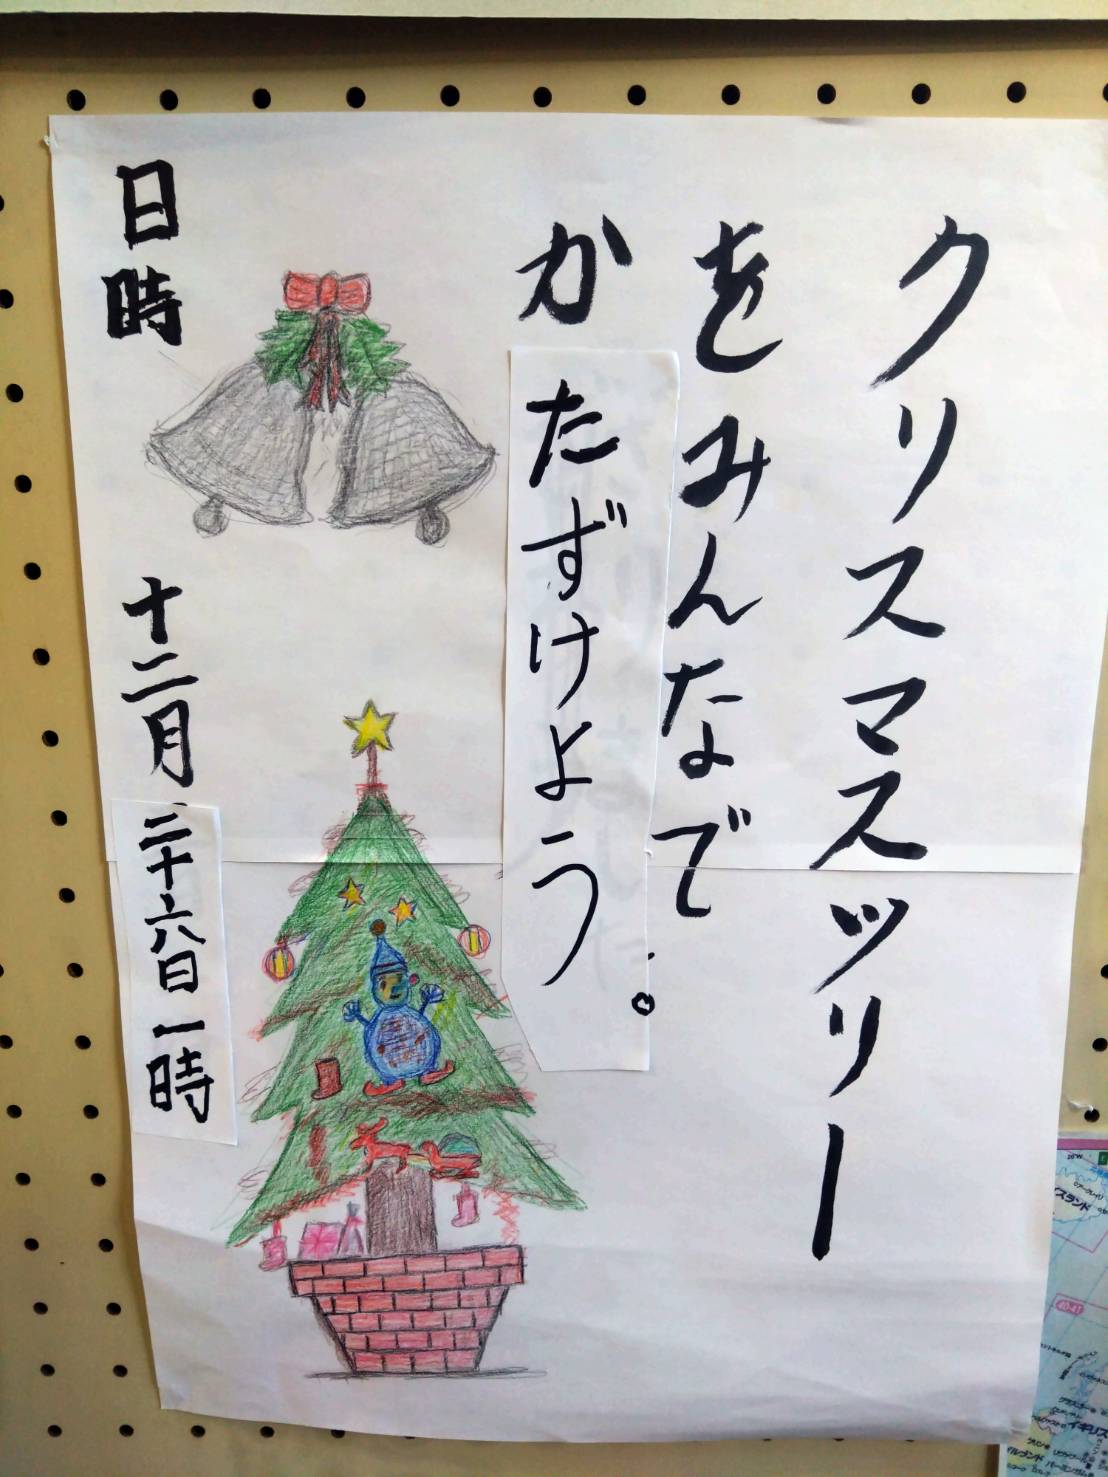 クリスマスツリー
をみんなで
かたずけよう。
日時 十二月二十六日一時
イスランド
イギリス